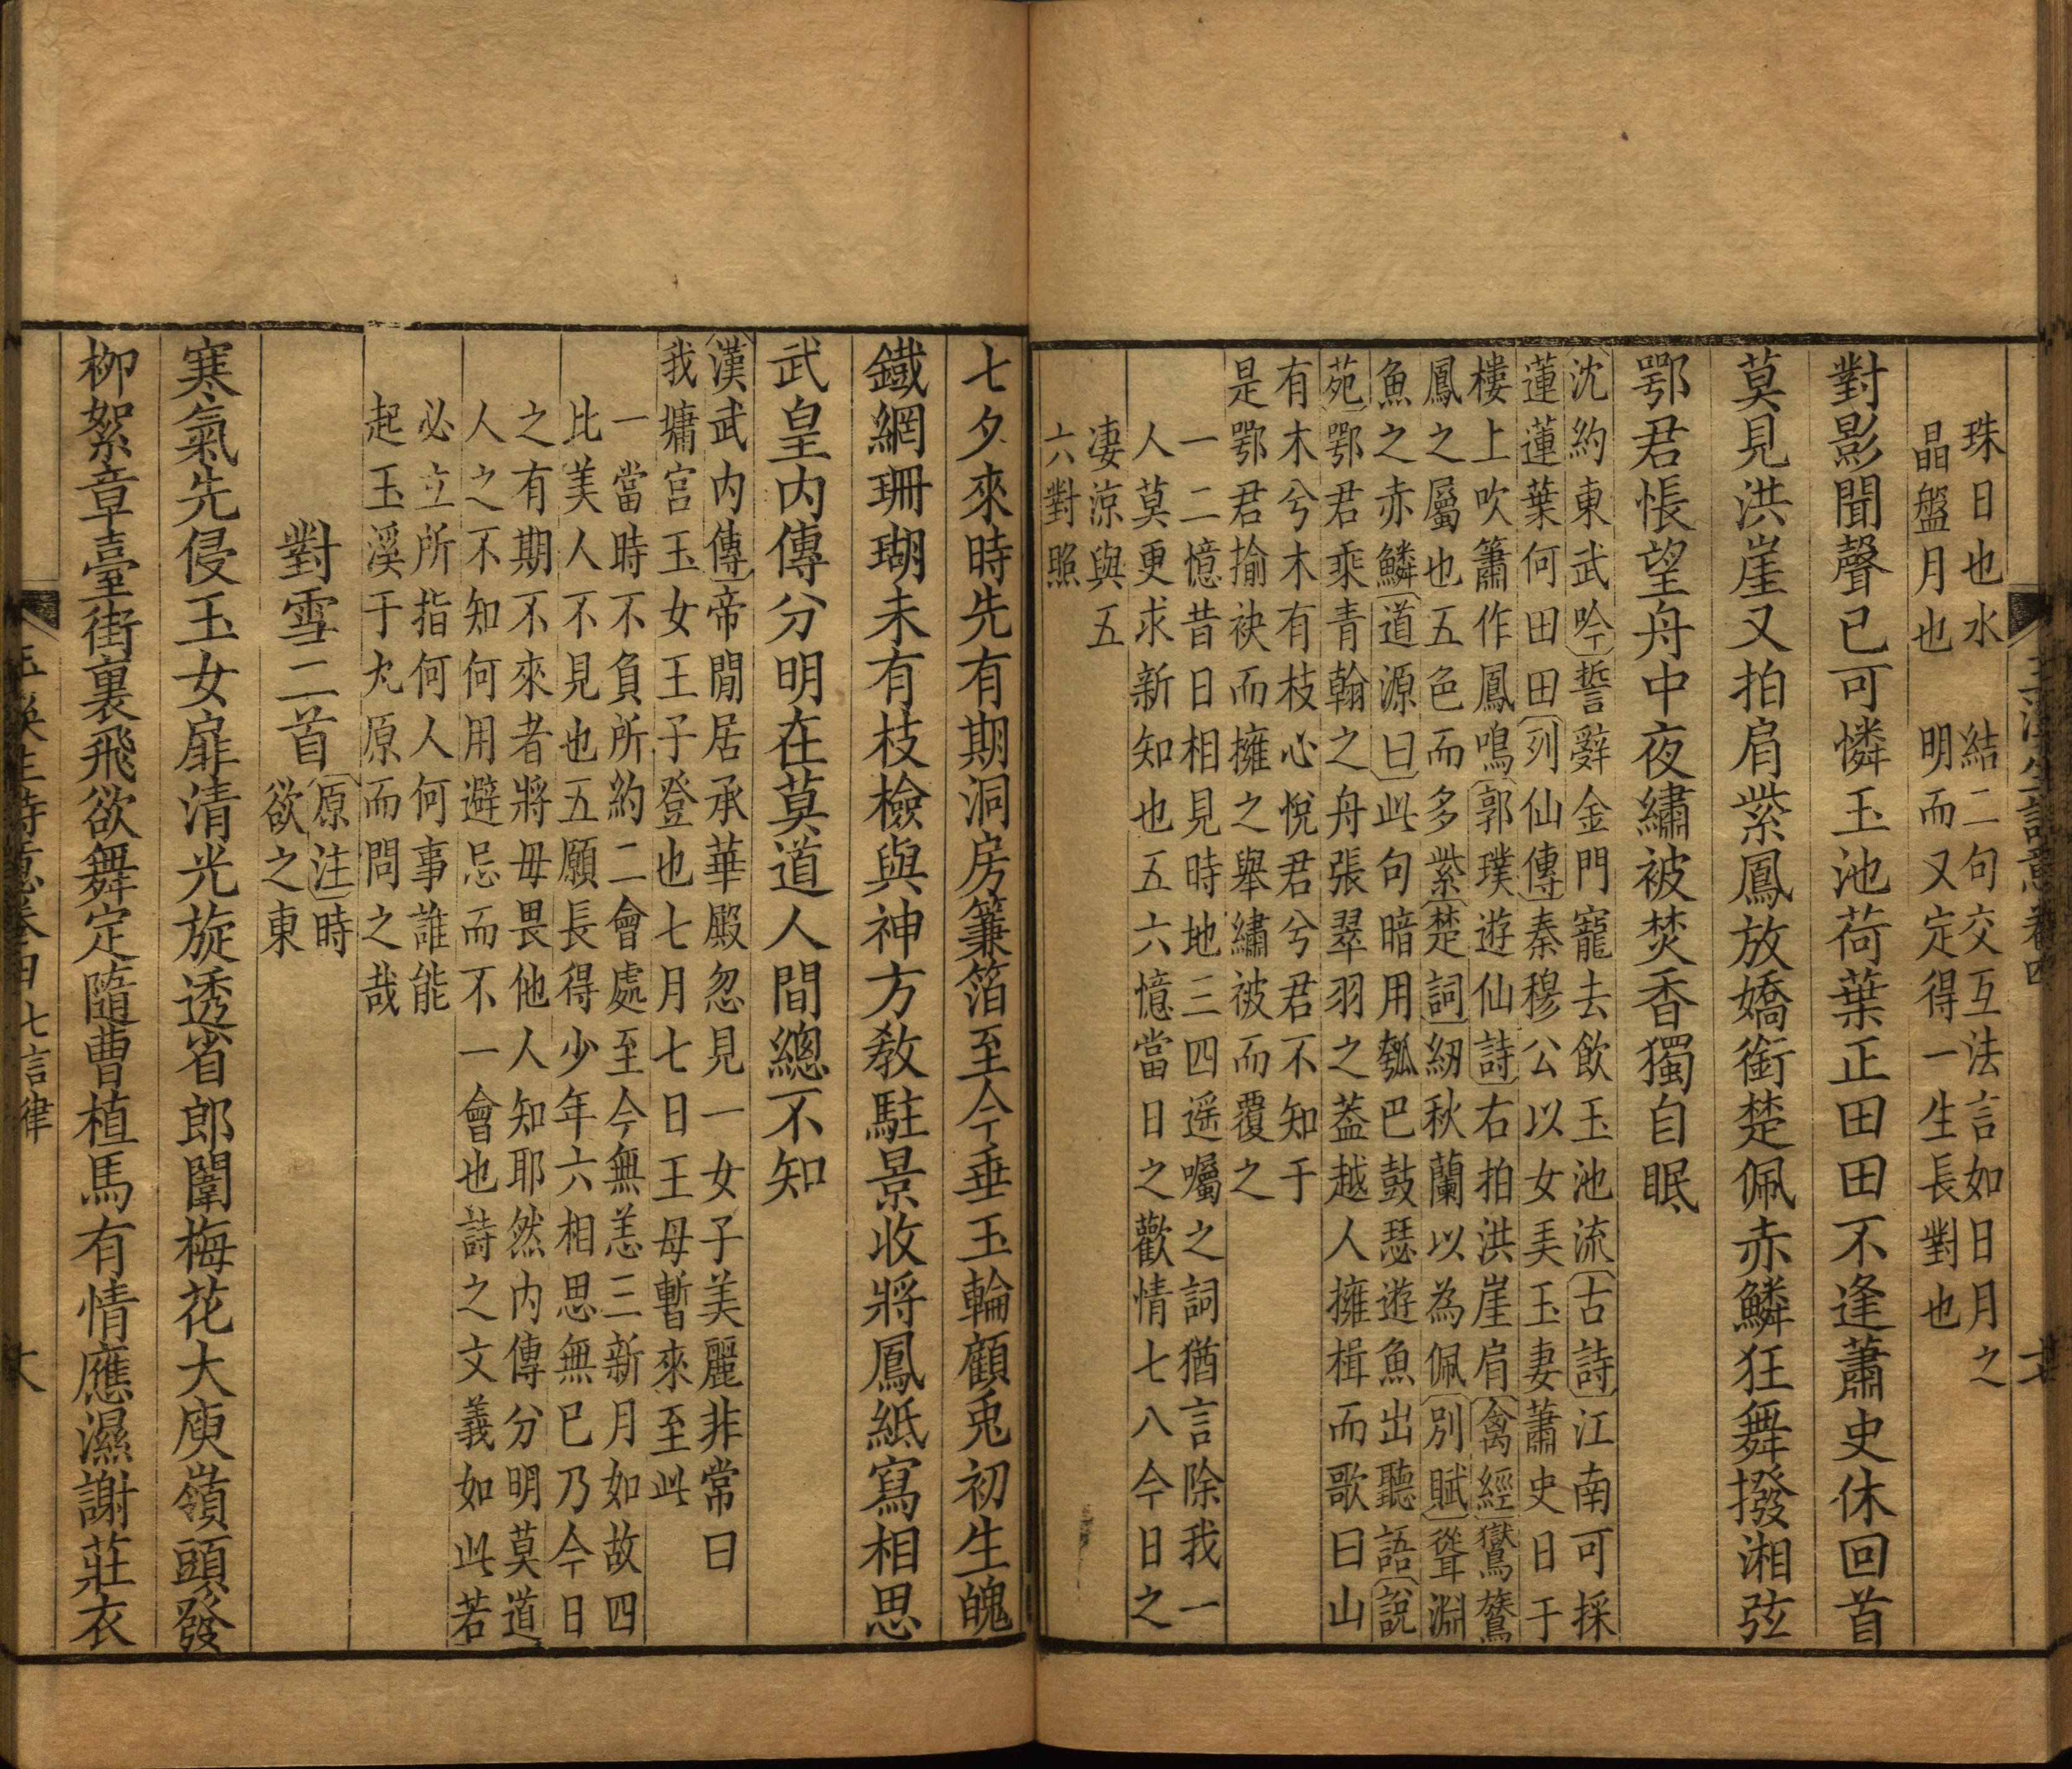 珠日也水　結二句交互法言如日月之
晶盤月也　明而又定得一生長對也
對影聞聲已可憐玉池荷葉正田田不逢蕭史休回首
莫見洪崖又拍肩紫鳳放嬌銜楚佩赤鱗狂舞撥湘弦
鄂君悵望舟中夜繡被焚香獨自眠
沈約東武吟誓辭金門寵去飲玉池流古詩江南可採
蓮蓮葉何田田列仙傳秦穆公以女弄玉妻蕭史日于
樓上吹簫作鳳鳴郭璞遊仙詩右拍洪崖肩禽經鸑鷟
鳳之屬也五色而多紫楚詞紉秋蘭以為佩別賦聳淵
魚之赤鱗道源曰此句暗用瓠巴鼓瑟遊魚出聽語說
苑鄂君乘青翰之舟張翠羽之蓋越人擁楫而歌曰山
有木兮木有枝心悅君兮君不知于
是鄂君揄袂而擁之舉繡被而覆之
一二憶昔日相見時地三四遥囑之詞猶言除我一
人莫更求新知也五六憶當日之歡情七八今日之
凄涼與五
六對照
七夕來時先有期洞房簾箔至今垂玉輪顧兎初生魄
鐵網珊瑚未有枝檢與神方教駐景收將鳳紙寫相思
武皇内傳分明在莫道人間總不知
漢武内傳帝閒居承華殿忽見一女子美麗非常曰
我墉宫玉女王子登也七月七日王母暫來至此
一當時不負所約二會處至今無恙三新月如故四
比美人不見也五願長得少年六相思無已乃今日
之有期不來者將毋畏他人知耶然内傳分明莫道
人之不知何用避忌而不一會也詩之文義如此若
必立所指何人何事誰能
起玉溪于九原而問之哉
對雪二首　原注時
欲之東
寒氣先侵玉女扉清光旋透省郎闈梅花大庾嶺頭發
柳絮章臺街裏飛欲舞定隨曹植馬有情應濕謝莊衣
七言律